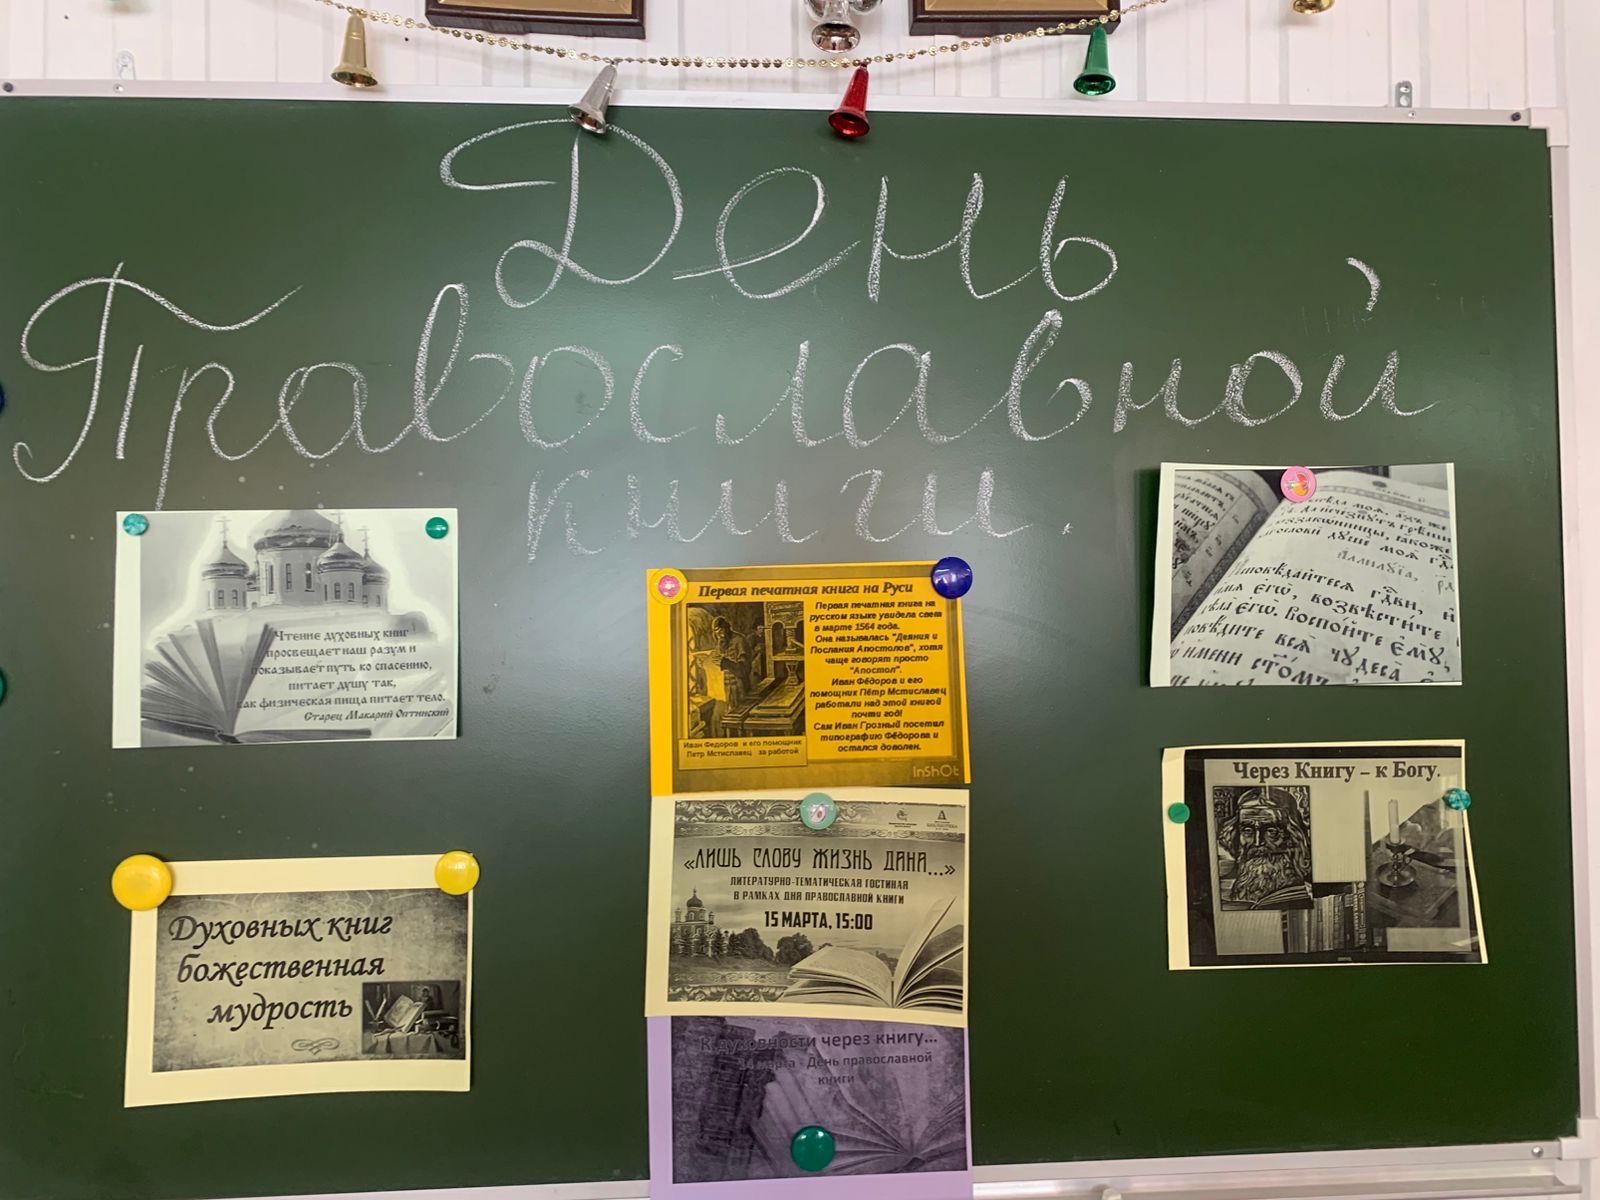 День
Православной
книги.
Чтение духовных книг
просвещает наш разум и
показывает путь ко спасению,
питает душу так,
как физическая пища питает тело.
Старец Макарий Оптинский
Духовных книг
божественная
мудрость
Первая печатная книга на Руси
Первая печатная книга на
русском языке увидела свет
в марте 1564 года.
Она называлась "Деяния и
Послания Апостолов", хотя
чаще говорят просто
"Апостол".
Иван Фёдоров и его
помощник Пётр Мстиславец
работали над этой книгой
почти год!
Сам Иван Грозный посетил
типографию Фёдорова и
остался доволен.
Иван Федоров и его помощник
Петр Мстиславец за работой
InShOt
«ЛИШЬ СЛОВУ ЖИЗНЬ ДАНА...»
ЛИТЕРАТУРНО-ТЕМАТИЧЕСКАЯ ГОСТИНАЯ
В РАМКАХ ДНЯ ПРАВОСЛАВНОЙ КНИГИ
15 МАРТА, 15:00
К духовности через книгу...
14 марта - День православной
книги
души моѧ
аллилꙋїа,
возвѣстите
воспо́йте є҆мꙋ̀,
всѧ̑ чꙋдеса̀
имени
Через Книгу – к Богу.